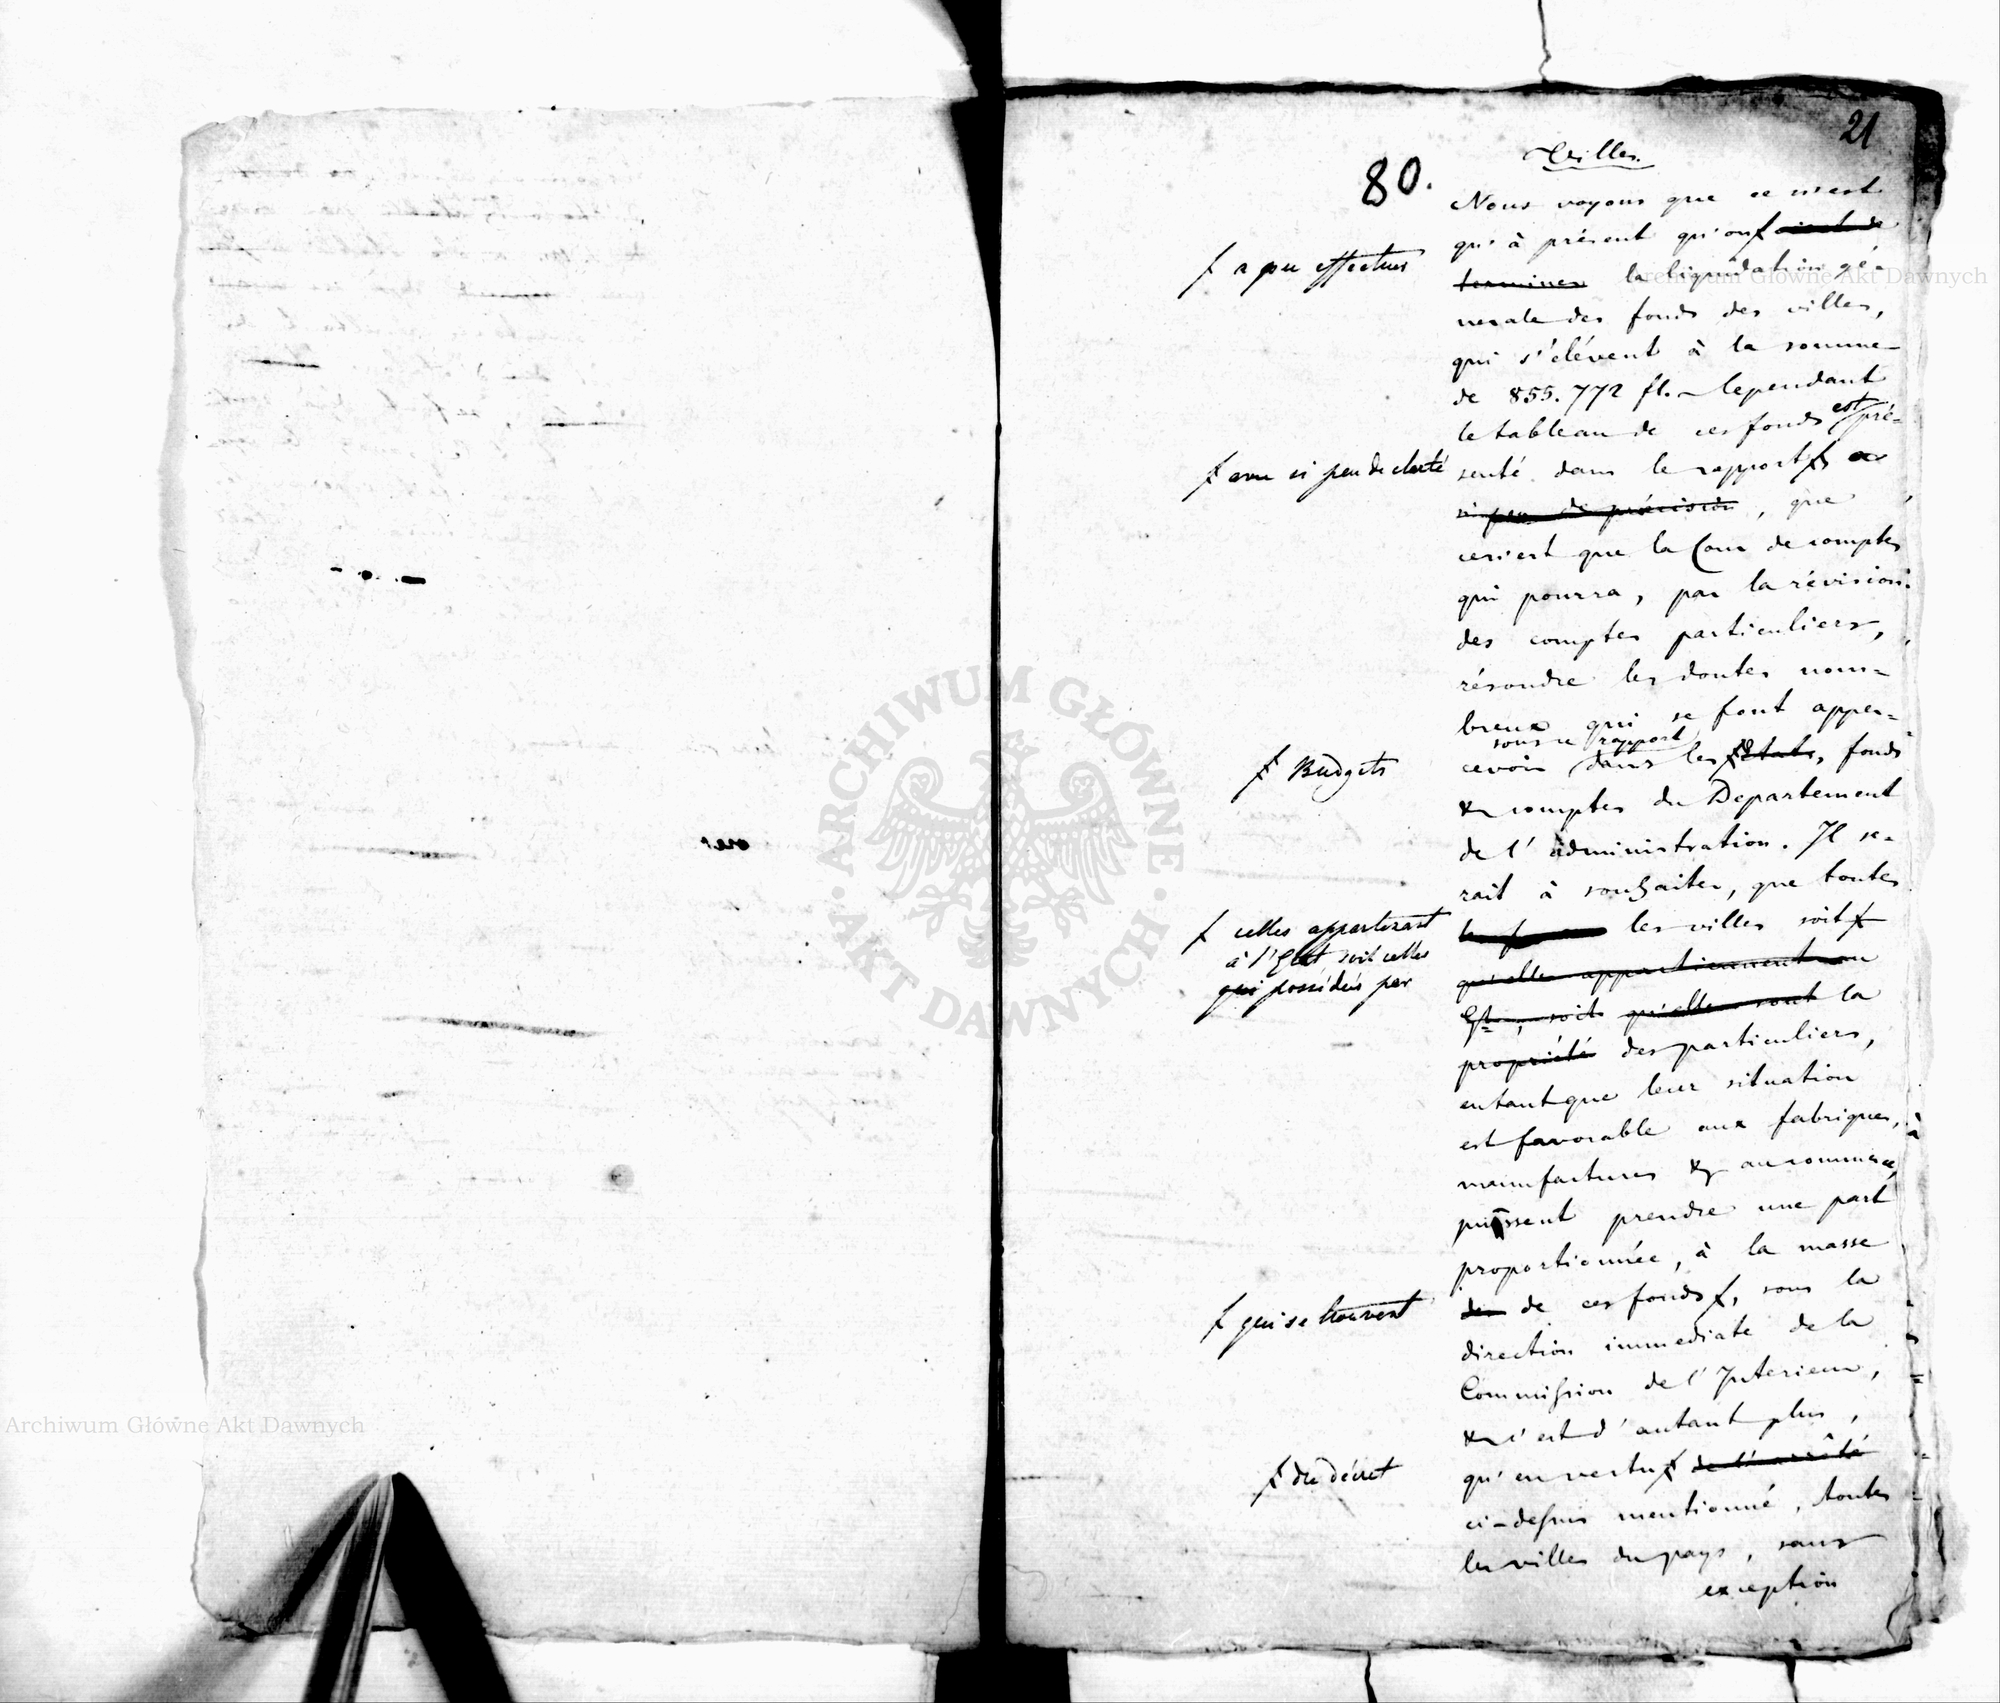 21
80.
Villes.
Nous voyons que ce n'est
qu'à présent qu'on ƒ vient de
ƒ a pu effectuer
terminer la liquidation gé-
nerale des fonds des villes,
qui s'élévent à la somme
de 855.772 fl. – Cependant
le tableau de ces fonds est pré-
senté dans le rapport ƒ
ƒ avec si peu de clarté
si peu de précision, que
ce n'est que la Cour de comptes
qui pourra, par la révision
des comptes particuliers,
résoudre les doutes nom-
breux qui se font apper-
sous ce rapport
cevoir dans les ƒ états, fonds
ƒ Budgets
& comptes du Departement
de l'administration. Il se-
rait à souhaiter, que toutes
les villes soit ƒ
ƒ celles appartenant
à l'Etat soit celles
qui possédées par
qu'elles appartiennent au
Gt., soit qu'elles sont la
propriété des particuliers,
entant que leur situation
est favorable aux fabriques, à
manufactures & au commerce,
puissent prendre une part
proportionnée, à la masse
des de ces fonds ƒ, sous la
ƒ qui se trouvent
direction immediate de la
Commission de l'Interieur,
& c'est d'autant plus,
qu'en vertu ƒ de l'arrêté
ƒ du décret
ci-dessus mentionné, toutes
les villes du pays, sans
exception
Archiwum Główne Akt Dawnych
Archiwum Główne Akt Dawnych
ARCHIWUM GŁÓWNE · AKT DAWNYCH ·